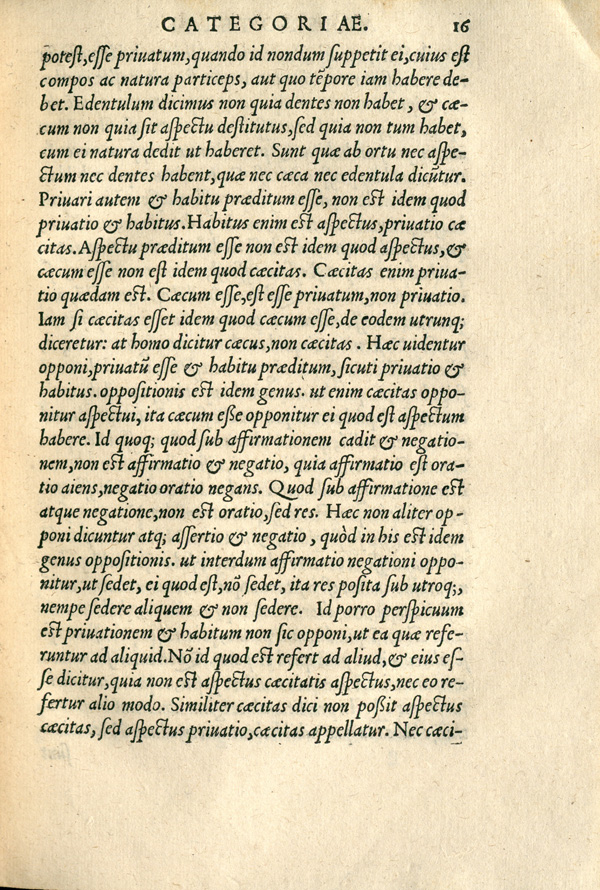 CATEGORIAE. 16
potest,esse priuatum,quando id nondum suppetit ei,cuius est
compos ac natura particeps, aut quo tẽpore iam habere de-
bet. Edentulum dicimus non quia dentes non habet, & cæ-
cum non quia sit aspectu destitutus,sed quia non tum habet,
cum ei natura dedit ut haberet. Sunt quæ ab ortu nec aspe-
ctum nec dentes habent,quæ nec cæca nec edentula dicũtur.
Priuari autem & habitu præditum esse, non est idem quod
priuatio & habitus. Habitus enim est aspectus,priuatio cæ
citas. Aspectu præditum esse non est idem quod aspectus,&
cæcum esse non est idem quod cæcitas. Cæcitas enim priua-
tio quædam est. Cæcum esse,est esse priuatum,non priuatio.
Iam si cæcitas esset idem quod cæcum esse,de eodem utrunq;
diceretur: at homo dicitur cæcus,non cæcitas . Hæc uidentur
opponi,priuatũ esse & habitu præditum, sicuti priuatio &
habitus. oppositionis est idem genus. ut enim cæcitas oppo-
nitur aspectui, ita cæcum eße opponitur ei quod est aspectum
habere. Id quoq; quod sub affirmationem cadit & negatio-
nem,non est affirmatio & negatio, quia affirmatio est ora-
tio aiens,negatio oratio negans. Quod sub affirmatione est
atque negatione,non est oratio,sed res. Hæc non aliter op-
poni dicuntur atq; assertio & negatio , quòd in his est idem
genus oppositionis. ut interdum affirmatio negationi oppo-
nitur,ut sedet, ei quod est,nõ sedet, ita res posita sub utroq;,
nempe sedere aliquem & non sedere. Id porro perspicuum
est priuationem & habitum non sic opponi, ut ea quæ refe-
runtur ad aliquid. Nõ id quod est refert ad aliud,& eius es-
se dicitur,quia non est aspectus cæcitatis aspectus,nec eo re-
fertur alio modo. Similiter cæcitas dici non poßit aspectus
cæcitas, sed aspectus priuatio,cæcitas appellatur. Nec cæci-